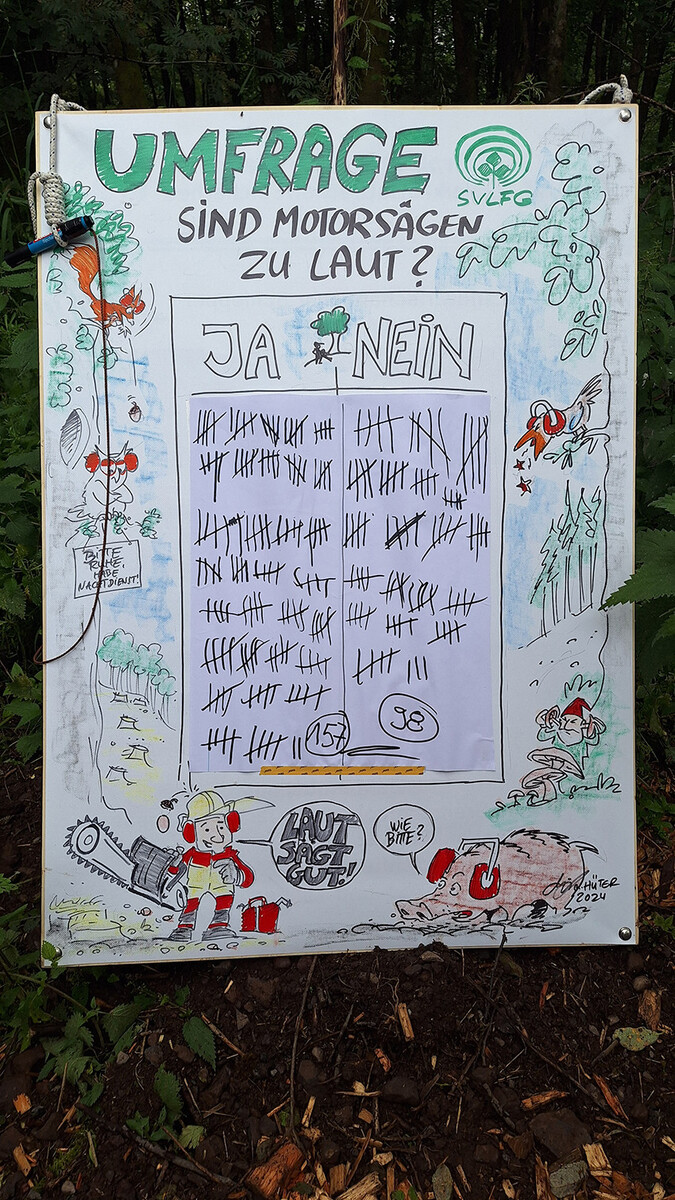 UMFRAGE
SVLFG
SIND MOTORSÄGEN
ZU LAUT?
JA NEIN
BITTE
RUHE,
HABE
NACHTDIENST!
157
98
LAUT
SAGT
GUT!
WIE
BITTE?
HÜTER
2024